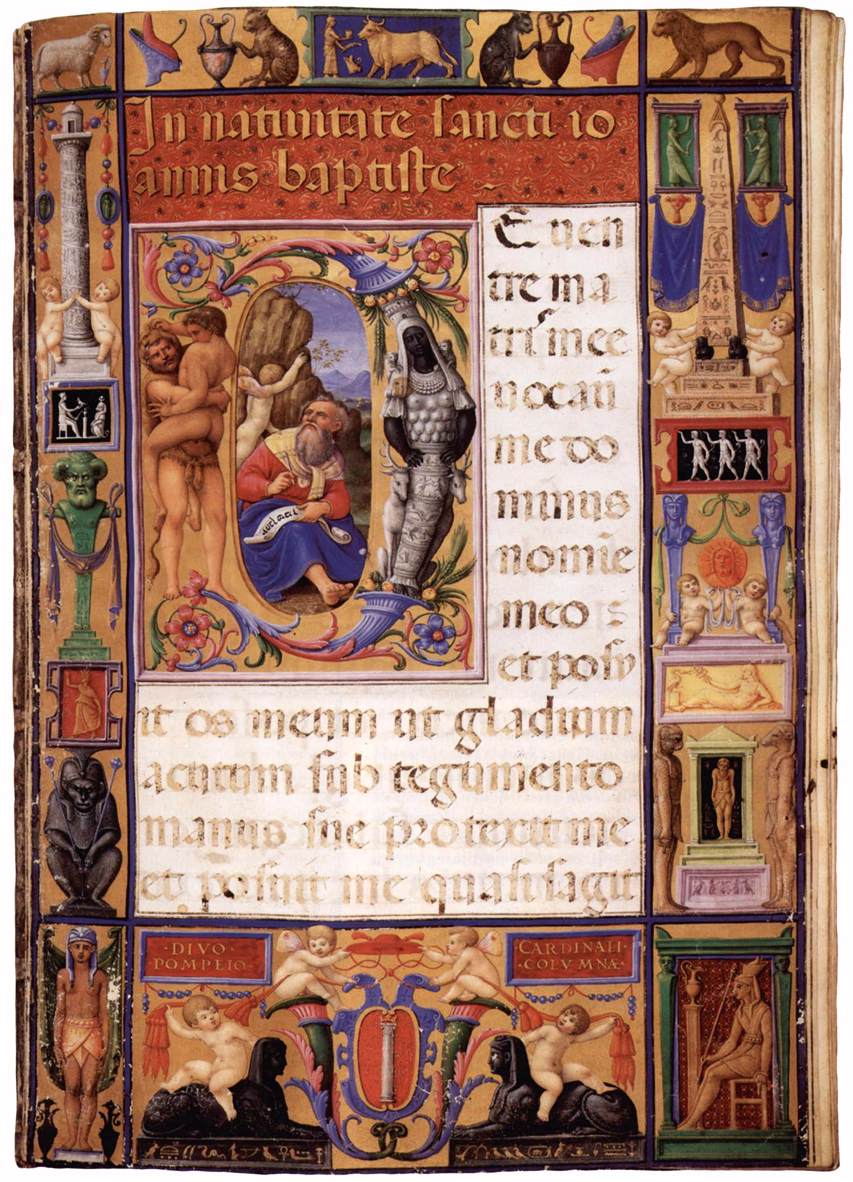 In natiuitate sancti io
annis baptiste
E uen
tre ma
tris mee
uocaū
me do
minus
nomīe
meo :
et posu
it os meum ut gladium
acutum sub tegumento
manus sue protexit me
et posuit me quasi sagit
·DIVO·
POMPEIO·
CARDINALI·
·COLVMNÆ·